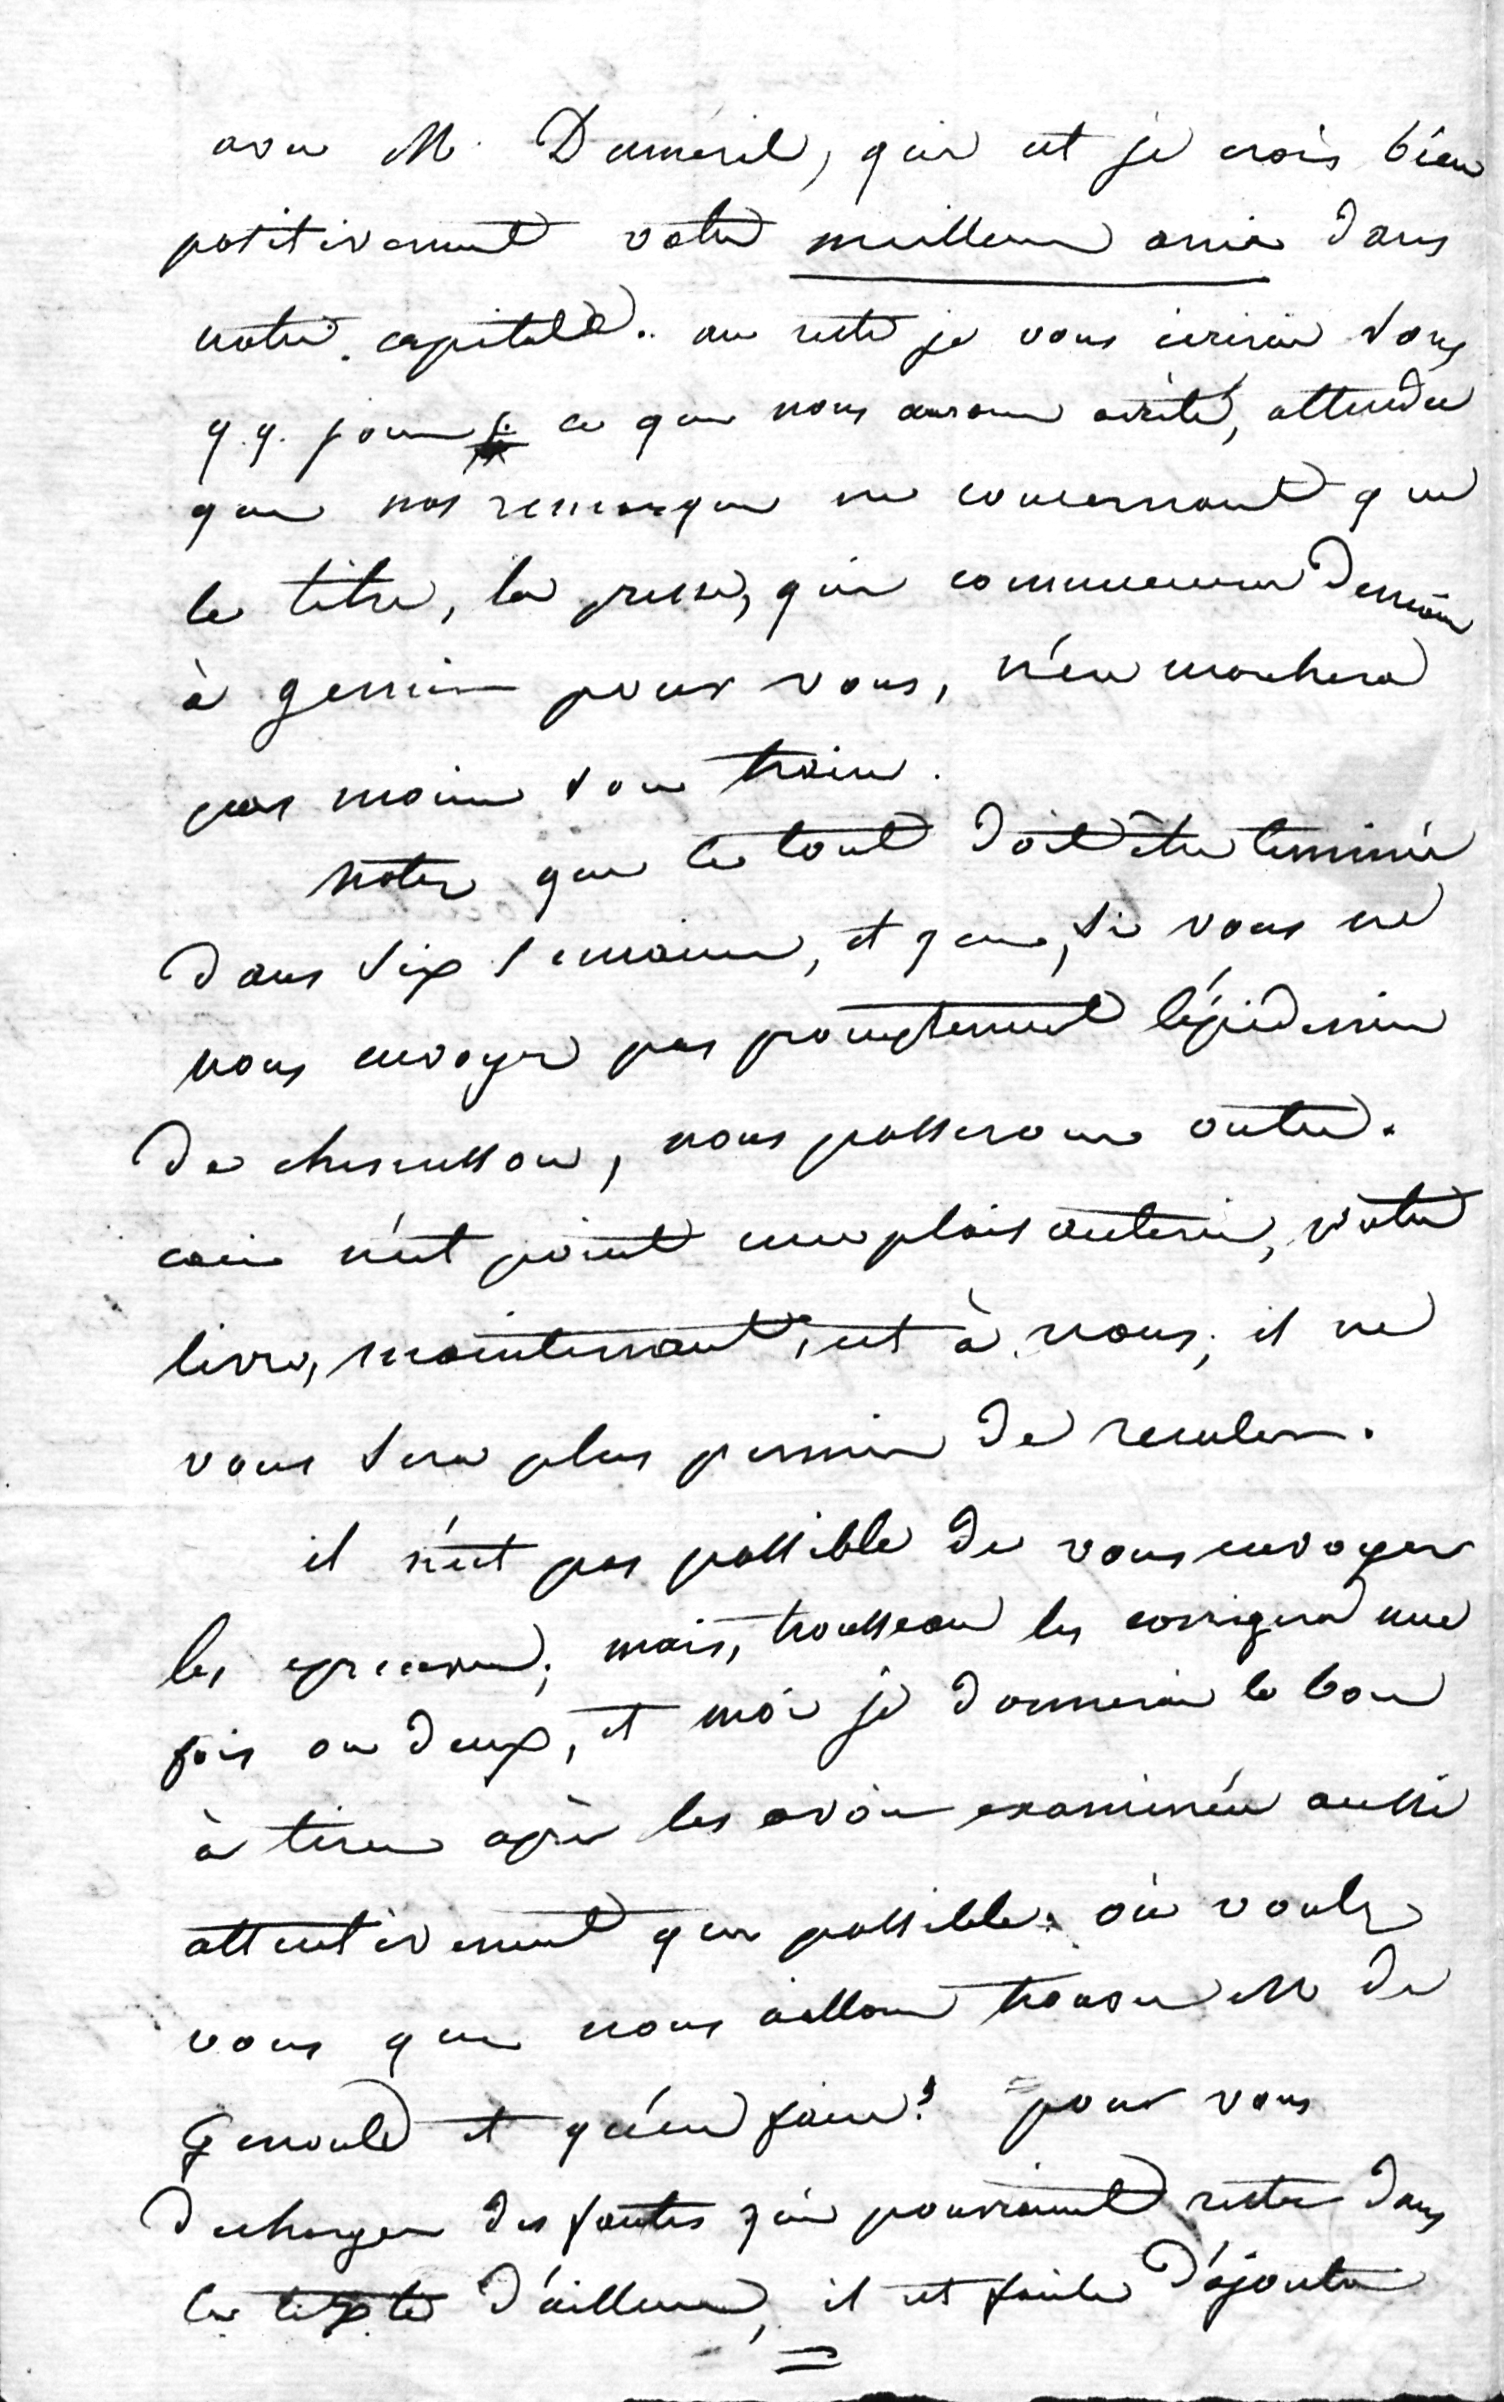 avec M. Dumeril, qui est je crois bien
positivement votre meilleur ami dans
notre capitale. au reste je vous ecrirai dans
q.q. jours ce que nous aurons arrêté, attendu
que nos remarques ne concernant que
le titre, la presse, qui commencera demain
à gemir pour vous, n'en marchera
pas moins son train.
notez que le tout doit être terminé
dans six semaines, et que, si vous ne
nous envoyez pas promptement l'épidemie
de chenusson, nous passerons outre.
ceci n'est point une plaisanterie, votre
livre, maintenant, est à nous; il ne
vous sera plus permis de reculer.
il n'est pas possible de vous envoyer
les epreuves; mais, trousseau les corrigera une
fois ou deux, et moi je donnerai le bon
à tirer après les avoir examinées aussi
attentivement que possible. où voulez
vous que nous allions trouver M de
Genoude et qu'en faire? pour vous
decharger des fautes qui pourraient rester dans
le texte d'ailleurs, il est facile d'ajouter